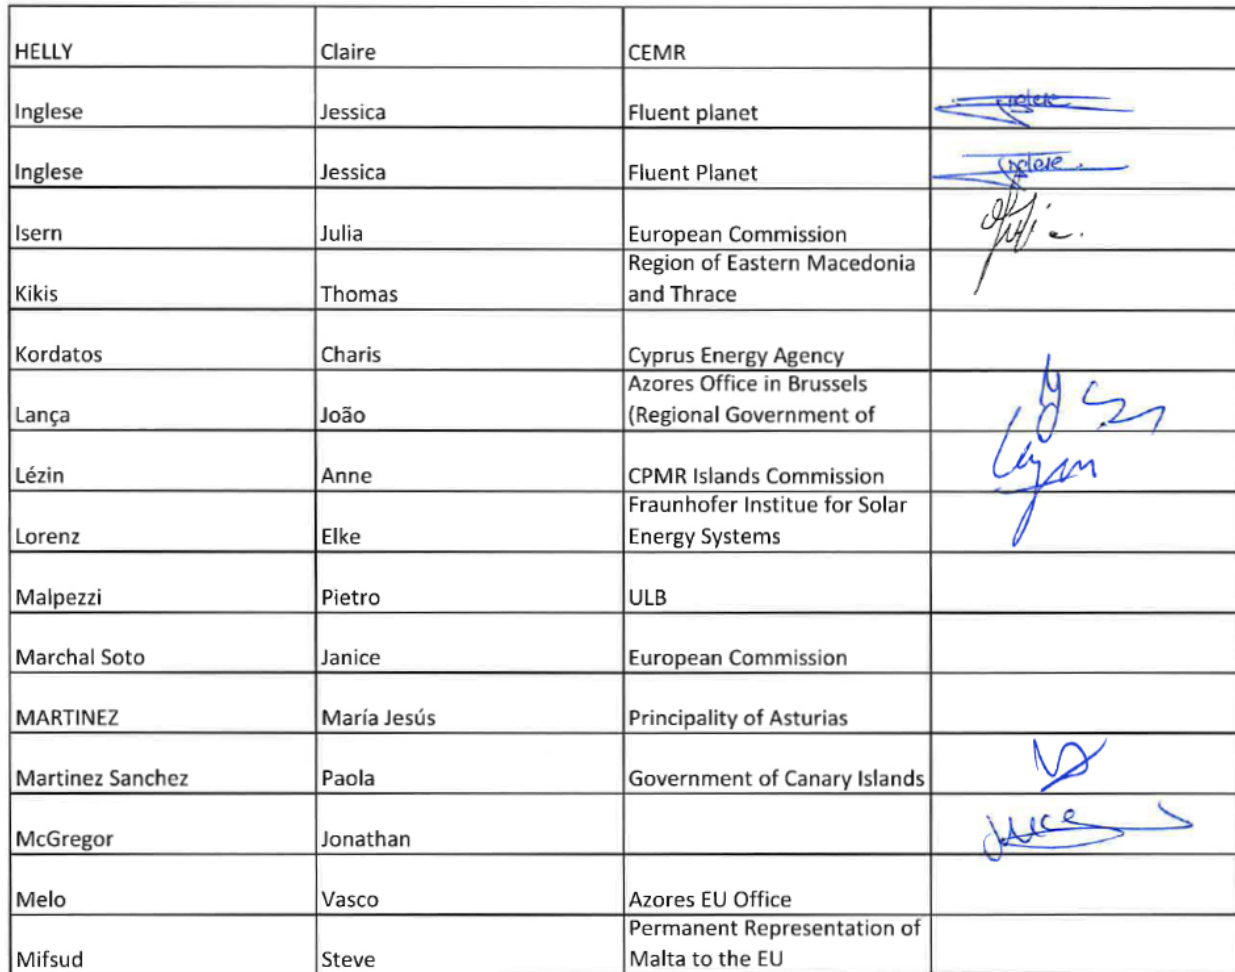 HELLY Claire CEMR
Inglese Jessica Fluent planet
Inglese Jessica Fluent Planet
Isern Julia European Commission
Region of Eastern Macedonia
Kikis Thomas and Thrace
Kordatos Charis Cyprus Energy Agency
Azores Office in Brussels
Lança João (Regional Government of
Lézin Anne CPMR Islands Commission
Fraunhofer Institue for Solar
Lorenz Elke Energy Systems
Malpezzi Pietro ULB
Marchal Soto Janice European Commission
MARTINEZ María Jesús Principality of Asturias
Martinez Sanchez Paola Government of Canary Islands
McGregor Jonathan
Melo Vasco Azores EU Office
Permanent Representation of
Mifsud Steve Malta to the EU